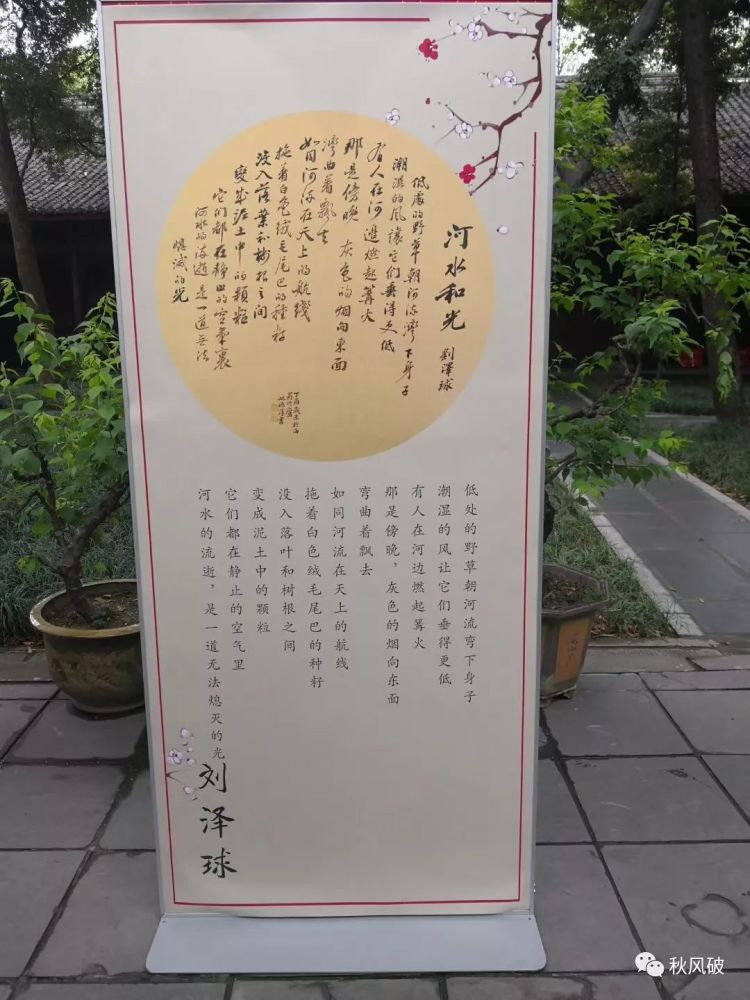 河水和光
劉澤球
低處的野草朝河流灣下身子
潮濕的風讓它們垂得更低
有人在河邊燃起篝火
那是傍晚 灰色的烟向東面
灣曲着飄去
如同河流在天上的航綫
拖着白色絨毛尾巴的種籽
没入落葉和樹根之间
變成泥土中的顆粒
它们都在静止的空氣裏
河水的流逝是一道無法
熄滅的光
低处的野草朝河流弯下身子
潮湿的风让它们垂得更低
有人在河边燃起篝火
那是傍晚，灰色的烟向东面
弯曲着飘去
如同河流在天上的航线
拖着白色绒毛尾巴的种籽
没入落叶和树根之间
变成泥土中的颗粒
它们都在静止的空气里
河水的流逝，是一道无法熄灭的光
刘泽球
秋风破